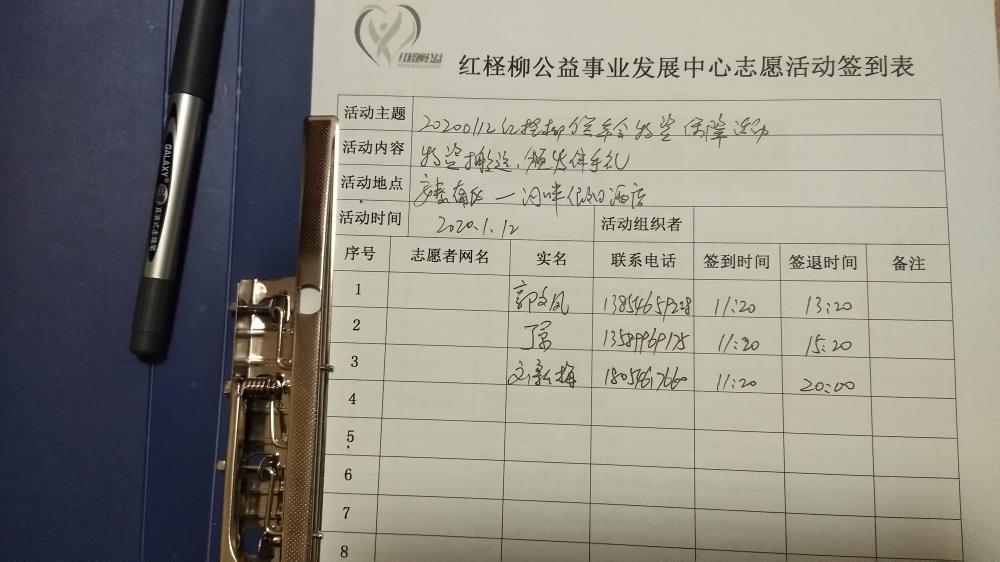 红柽柳公益
红柽柳公益事业发展中心志愿活动签到表
活动主题 20200112红柽柳 物资保障活动
活动内容 物资搬运、颁发伴手礼
活动地点 河畔假日酒店
活动时间 2020.1.12 活动组织者
序号 志愿者网名 实名 联系电话 签到时间 签退时间 备注
1 郭文凤 13854659228 11:20 13:20
2 丁景 13589969175 11:20 15:20
3 刘新梅 18054617660 11:20 20:00
4
5
6
7
8
GALAXY
直液式走珠笔